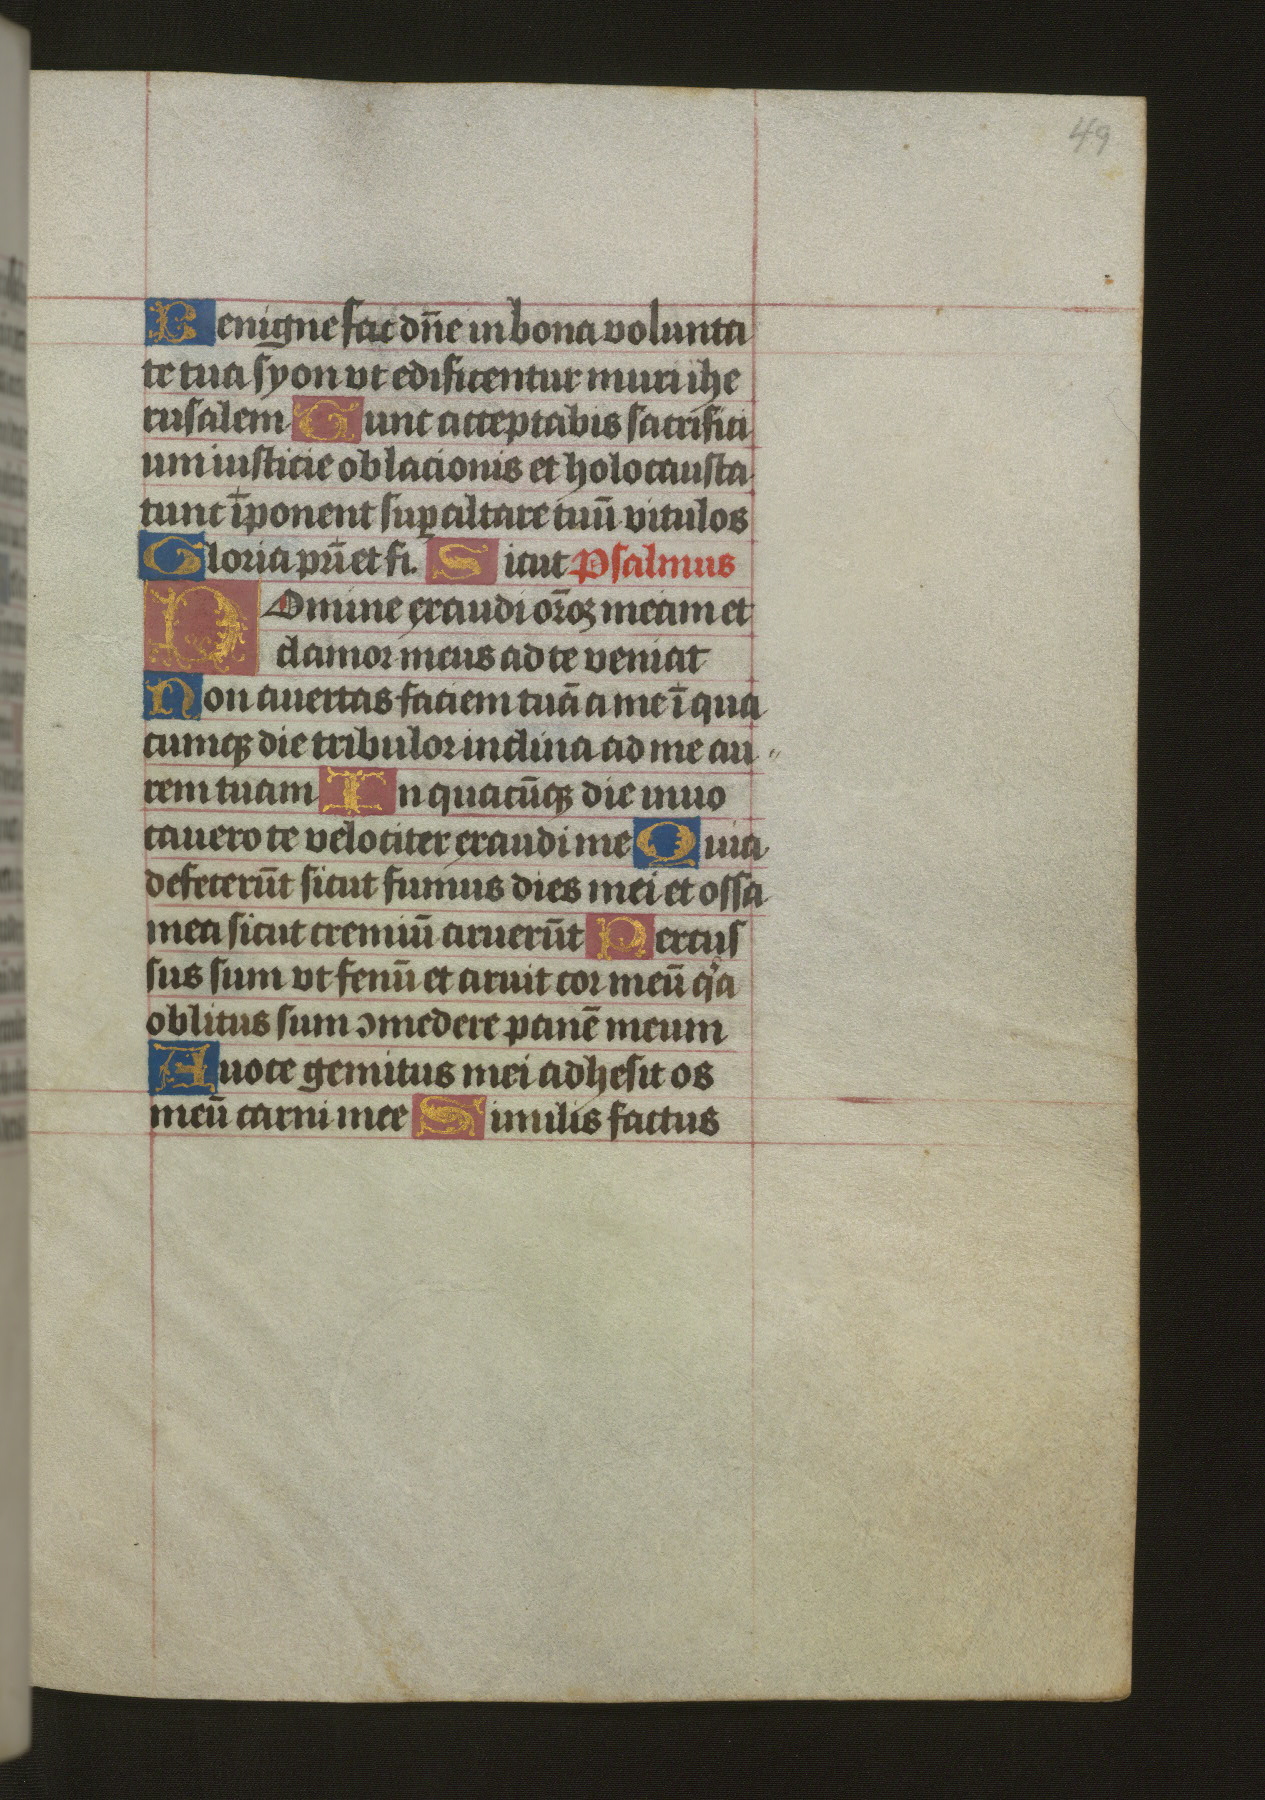 49
Benigne fac dn̄e in bona volunta
te tua syon vt edificentur muri ihe
rusalem Gunc acceptabis sacrifici
um iusticie oblacionis et holocausta
tunc īponent suꝑ altare tuū vitulos
Gloria pr̄i et fi. Sicut Psalmus
Domine exaudi or̄oꝫ meam et
clamor meus ad te veniat
Non auertas faciem tuā a me ī qua
cumqꝫ die tribulor inclina ad me au
rem tuam In quacūqꝫ die inuo
cauero te velociter exaudi me Quia
defecerūt sicut fumus dies mei et ossa
mea sicut cremiū aruerūt Percus
sus sum vt fenū et aruit cor meū qͥa
oblitus sum ↄmedere panē meum
A uoce gemitus mei adhesit os
meū carni mee Similis factus